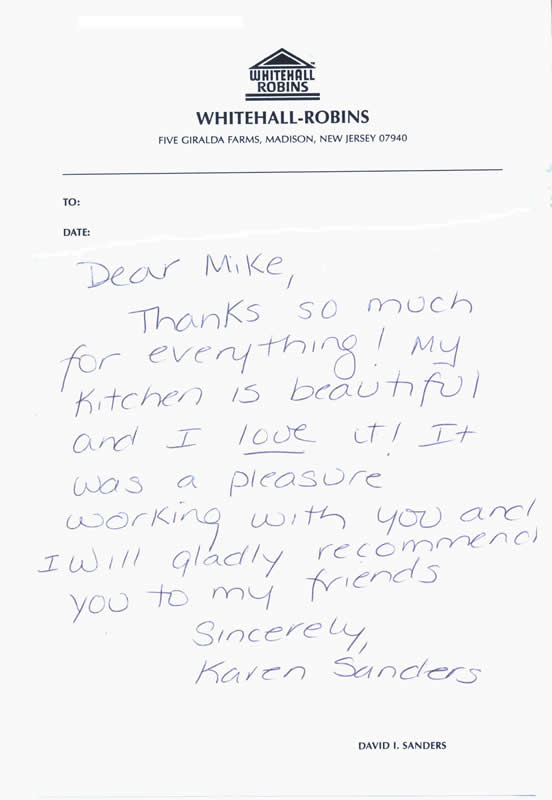 WHITEHALL
ROBINS
WHITEHALL-ROBINS
FIVE GIRALDA FARMS, MADISON, NEW JERSEY 07940
TO:
DATE:
Dear Mike,
Thanks so much
for everything! My
Kitchen is beautiful
and I love it! It
was a pleasure
working with you and
I will gladly recommend
you to my friends
Sincerely,
Karen Sanders
DAVID I. SANDERS